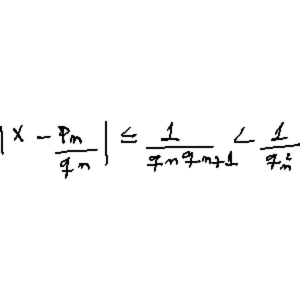 |x - \frac{p_n}{q_n}| \leq \frac{1}{q_n q_{n+1}} < \frac{1}{q_n^2}